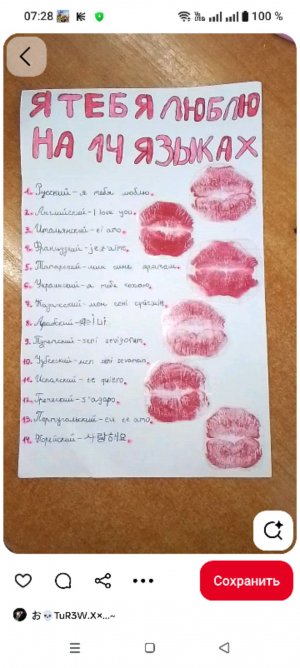 07:28
100 %
Я ТЕБЯ ЛЮБЛЮ
НА 14 ЯЗЫКАХ
1. Русский - я тебя люблю.
2. Английский - I love you.
3. Итальянский - ti amo.
4. Французский - je t'aime.
5. Татарский - мин сине яратам.
6. Украинский - я тебе кохаю.
7. Казахский - мен сені сүйемін.
8. Арабский -
9. Турецкий - seni seviyorum.
10. Узбекский - men seni sevaman.
11. Испанский - te quiero.
12. Греческий - s'agapo.
13. Португальский - eu te amo.
14. Корейский - 사랑해요.
Сохранить
お💀TuR3W.X×...~